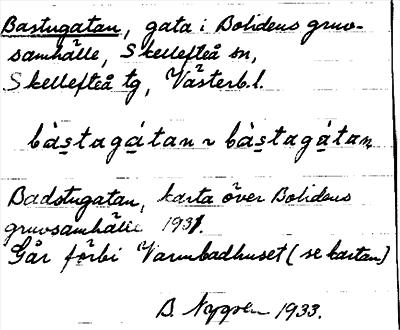 Bastugatan, gata i Bolidens gruv-
samhälle, Skellefteå sn,
Skellefteå tg, Västerb.l.
bàstagátan ~ bàstagátan
Badstugatan, karta över Bolidens
gruvsamhälle 1931.
Går förbi Varmbadhuset (se kartan)
B. Nygren 1933.